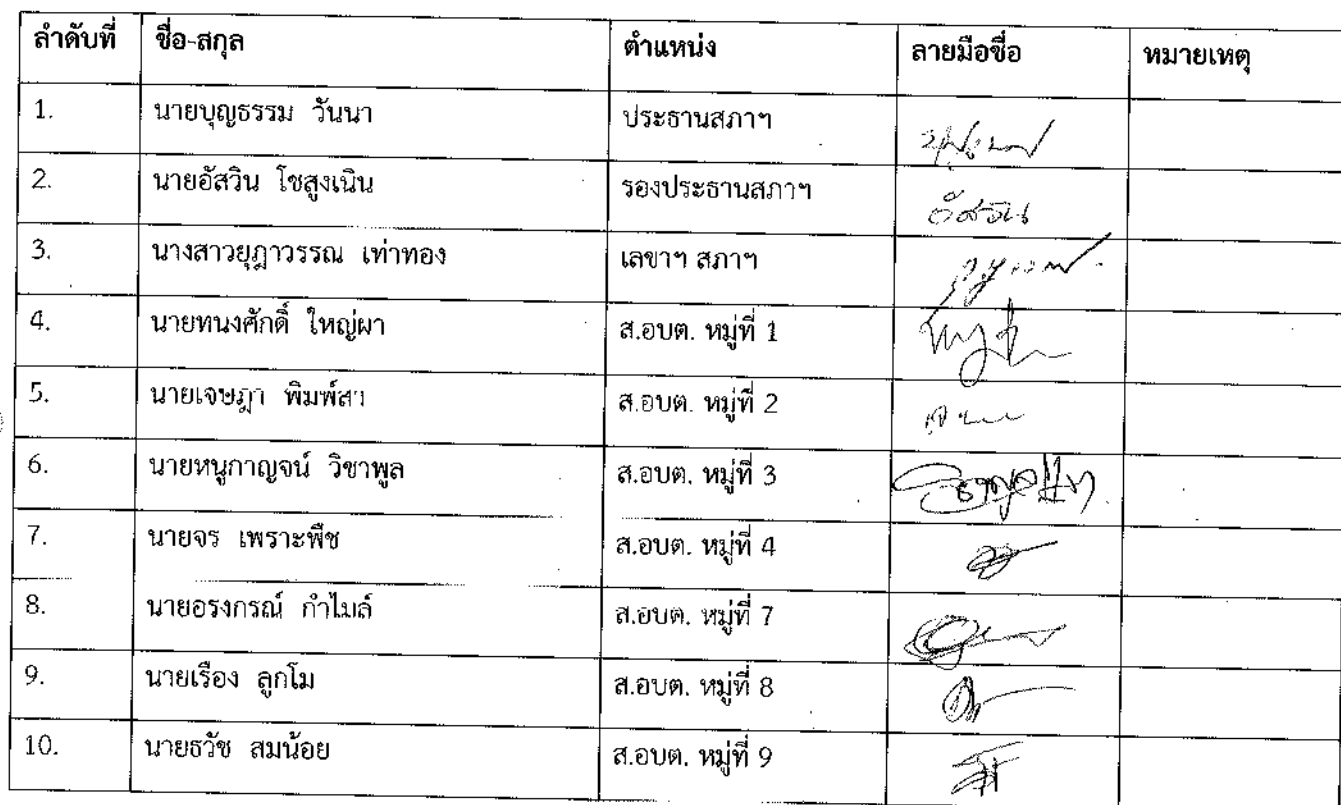 ลำดับที่ ชื่อ-สกุล ตำแหน่ง ลายมือชื่อ หมายเหตุ
1. นายบุญธรรม วันนา ประธานสภาฯ
2. นายอัสวิน โชสูงเนิน รองประธานสภาฯ อัศวิน
3. นางสาวยุฎาวรรณ เท่าทอง เลขาฯ สภาฯ
4. นายทนงศักดิ์ ใหญ่ผา ส.อบต. หมู่ที่ 1
5. นายเจษฎา พิมพ์สา ส.อบต. หมู่ที่ 2
6. นายหนูกาญจน์ วิชาพูล ส.อบต. หมู่ที่ 3
7. นายจร เพราะพืช ส.อบต. หมู่ที่ 4
8. นายอรงกรณ์ กำไมล์ ส.อบต. หมู่ที่ 7
9. นายเรือง ลูกโม ส.อบต. หมู่ที่ 8
10. นายธวัช สมน้อย ส.อบต. หมู่ที่ 9